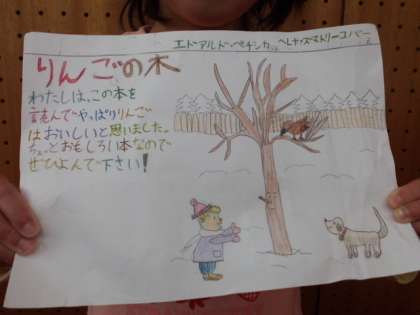 エドアルド・ペチシカ
ヘレナ・ズマトリーコバー
りんごの木
わたしは、この本を
読んでやっぱりりんご
はおいしいと思いました。
ちょっとおもしろい本なので
ぜひよんで下さい!